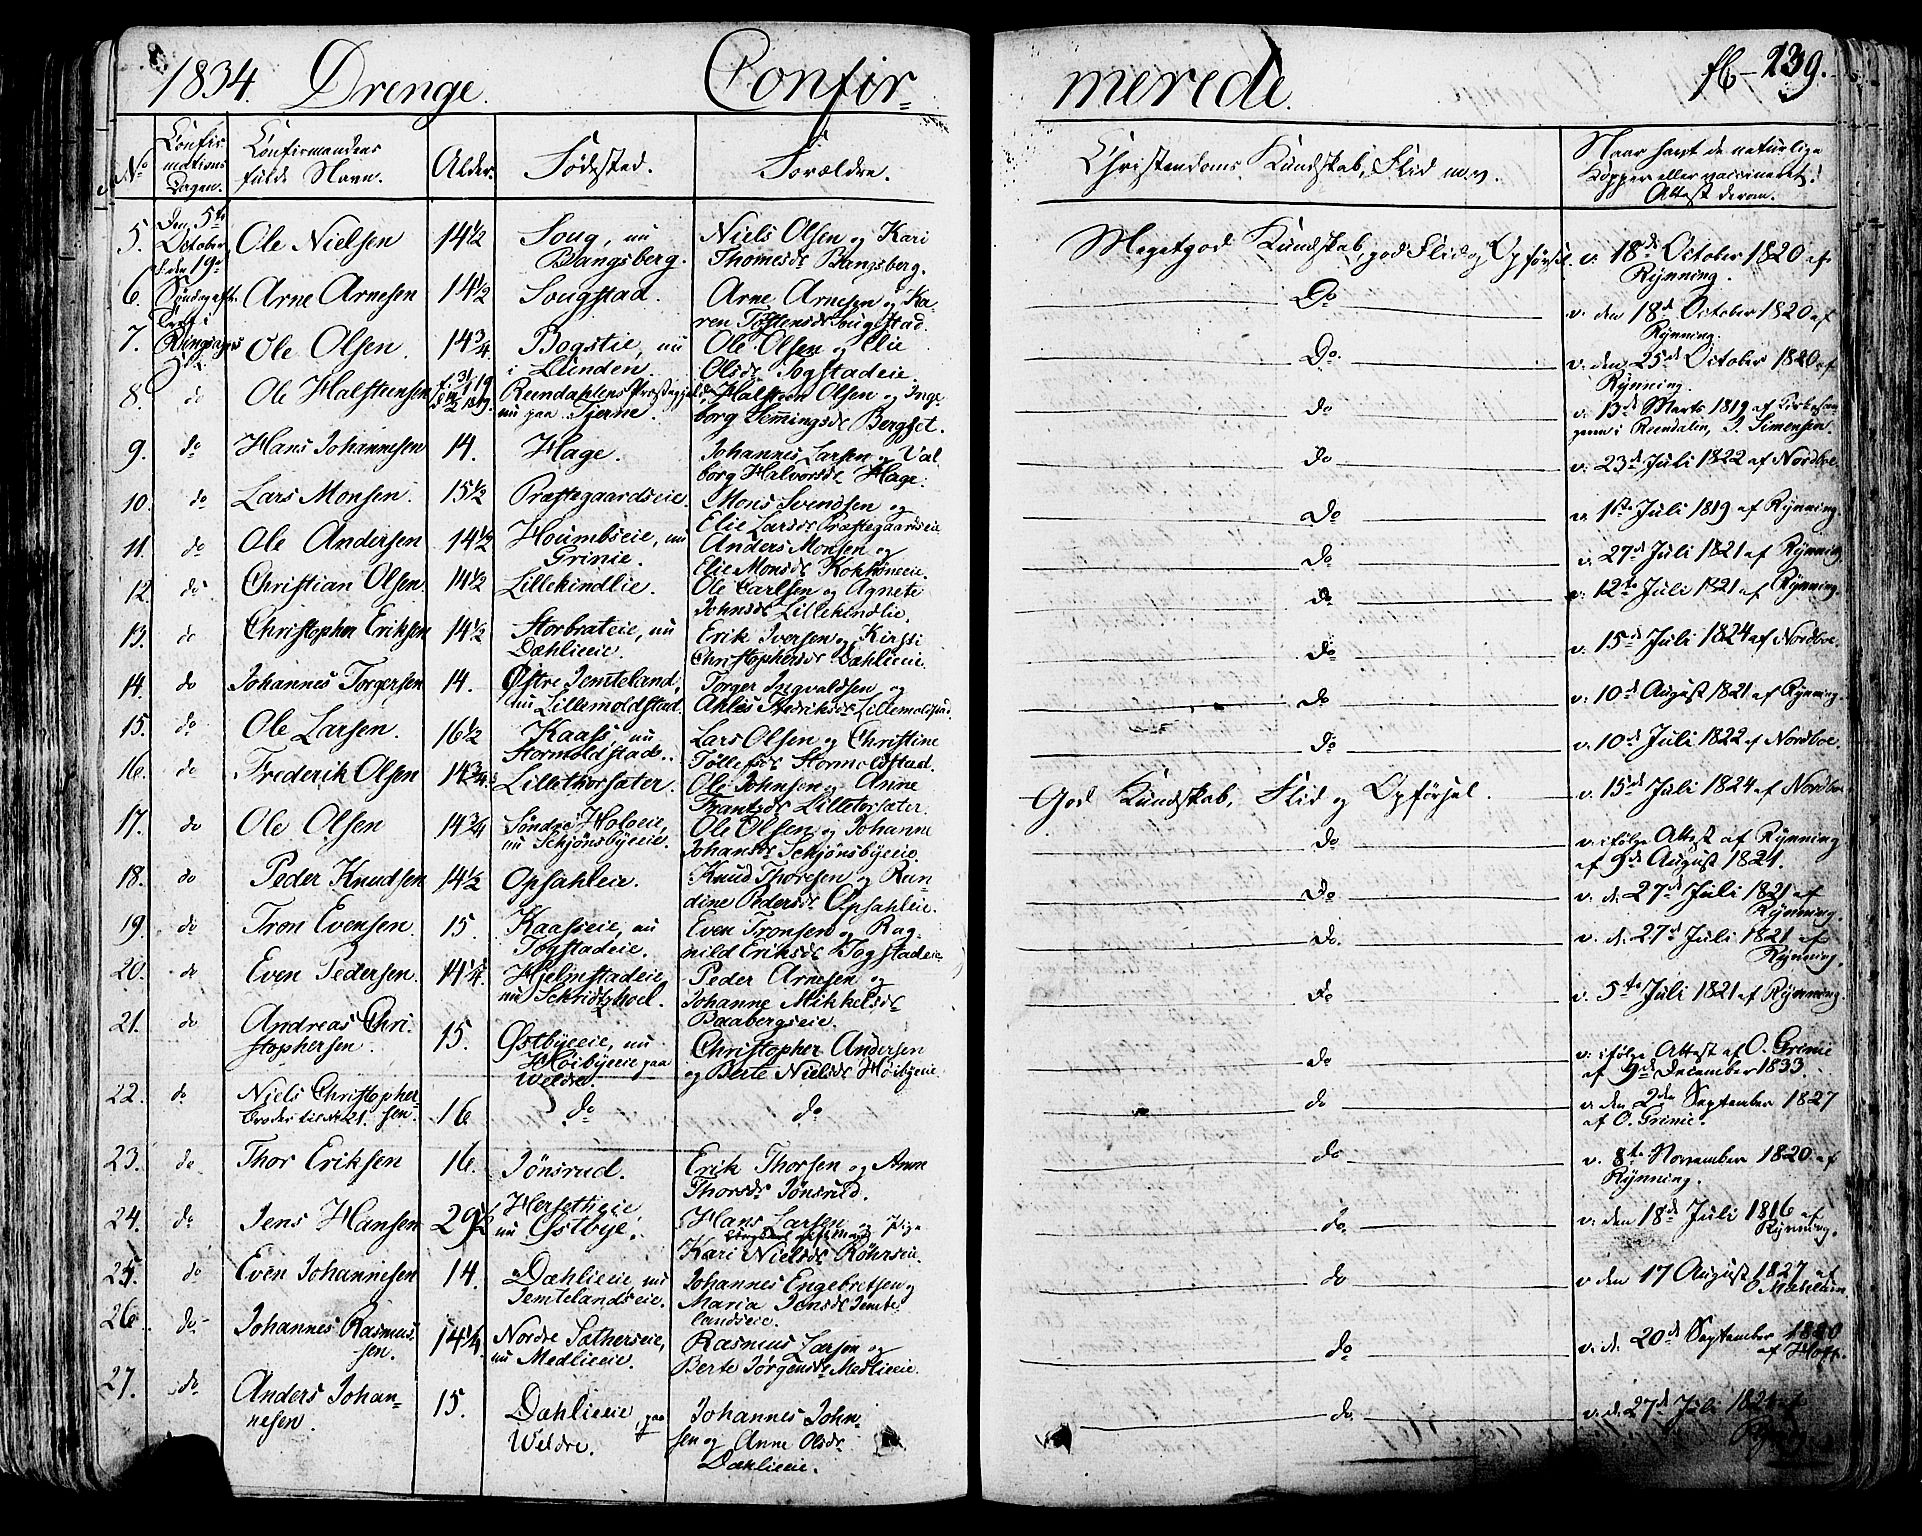 1834. Drenge. Confir=
merede. 239.
No
Confir
mations
Dagen.
Confirmandens
fulde Navn.
Alder.
Fødested.
Forældre.
Christendoms Kundskab, Flid m.v.
Naar havt de naturlige
Kopper eller vaccineret?
Attest derom.
5. Den 5te October Ole Nielsen 14½ Soug, nu Bangsberg. Niels Olsen og Kari Thomesdr Bangsberg. Meget god Kundskab, god Flid og Opførsel. v. 18de October 1820 af Rynning.
6. Arne Arnesen 14½ Sougstad. Arne Arnesen og Karen Tostensdr Sougstad. Do v. den 18de October 1820 af Rynning.
7. Ole Olsen 14¾ Bogstie, nu i Linden. Ole Olsen og Elie Olsdr Do. v. den 25de October 1820 af Rynning.
8. do Ole Halsteensen Reendahlens Præstegjeld, nu paa Tjerne. Halsteen Olsen og Ingeborg Hemingsdr do v. 13de Marts 1819 af i Reendalen, J. Simensen.
9. do Hans Johannesen 14. Hage. Johannes Larsen og Valborg Halvorsdr Hage. Do v. 23de Juli 1822 af Nordboe.
10. do Lars Monsen. 15½ Præstegaardseie. Mons Svendsen og Elie Larsdr Præstegaardseie. Do v. 1ste Juli 1819 af Rynning.
11. do Ole Andersen 14½ Houmbseie, nu Grinie. Anders Monsen og Elie Monsdr Do v. 27de Juli 1821 af Rynning.
12. do Christian Olsen. 14½ Lillekindlie. Ole Carlsen og Agnete Johnsdr Lillekindlie. do v. 12te Juli 1821 af Rynning.
13. do Christopher Eriksen 14½ Storbrateie, nu Dæhlieeie. Erik Iversen og Kirsti Christophersdr Dæhlieeie. Do v. 15de Juli 1824 af Nordboe.
14. do Johannes Torgersen 14. Østre Jemteland, nu Lillemoldstad. Torger Ingvaldsen og Ahles Fredriksdr Lillemoldstad. Do v. 10de August 1821 af Rynning.
15. do Ole Larsen. 16½ Kaass, nu Stormoldstad. Lars Olsen og Christine Tollefsdr Stormoldstad. Do v. 10de Juli 1822 af Nordboe.
16. do Frederik Olsen 14¾ Lillethorsæter. Ole Johnsen og Anne Frantsdr Lilletorsæter. God Kundskab, Flid og Opførsel. v. 15de Juli 1824 af Nordboe.
17. do Ole Olsen 14¾ Søndre Holoeie, nu Schjønsbyeeie. Ole Olsen og Johanne Johansdr Schjønsbyeeie. do v. ifølge Attest af Rynning af 9de August 1821.
18. do Peder Knudsen 14½ Opsahleie. Knud Thoresen og Rundine Pedersdr Opsahleie. Do v. d. 27de Juli 1821 af Rynning.
19. do Tron Evensen. 15. Kaasseie, nu Togstadeie. Even Tronsen og Ragnild Eriksdr Togstadeie. do. v. d. 27de Juli 1821 af Rynning.
20. do Even Pedersen. 14¼. Hjelmstadeie, nu Peder Arnesen og Johanne Mikkelsdr Baabergseie. do v. 5te Juli 1821 af Rynning.
21. do Andreas Christophersen. 15. Østbyeeie, nu Høibyeeie paa Weldre. Christopher Andersen og Berte Nielsdr Høibyeeie. do v. ifølge Attest af O. Grinie af 9de December 1833.
22. do Niels Christophersen. Broder til No 21. 16 do do do v. den 2den September 1827 af O. Grinie.
23. do Thor Eriksen 16. Jønsrud. Erik Thorsen og Anne Thorsdr Jønsrud. do v. 8te November 1820 af Rynning.
24. do Jens Hansen 29½ Hersethgie nu Østbye. Hans Larsen og Pige Kari Nielsdr Røhrseie. do v. den 18de Juli 1816 af Rynning.
25. do Even Johannesen 14. Dæhlieeie, nu Jemtelandseie. Johannes Engebretsen og Maria Jensdr Jemtelandseie. do v. den 17 August 1827 af O. Mæhlum.
26. do Johannes Rasmussen. 14¼. Nordre Satherseie, nu Medlieeie. Rasmus Larsen og Berte Jørgensdr Medlieeie. do v. d. 20de September 1820 af Hoff.
27. do Anders Johannesen. 15. Dæhlieeie paa Weldre. Johannes Johnsen og Anne Olsdr Dæhlieeie. do. v. d. 27de Juli 1821 af